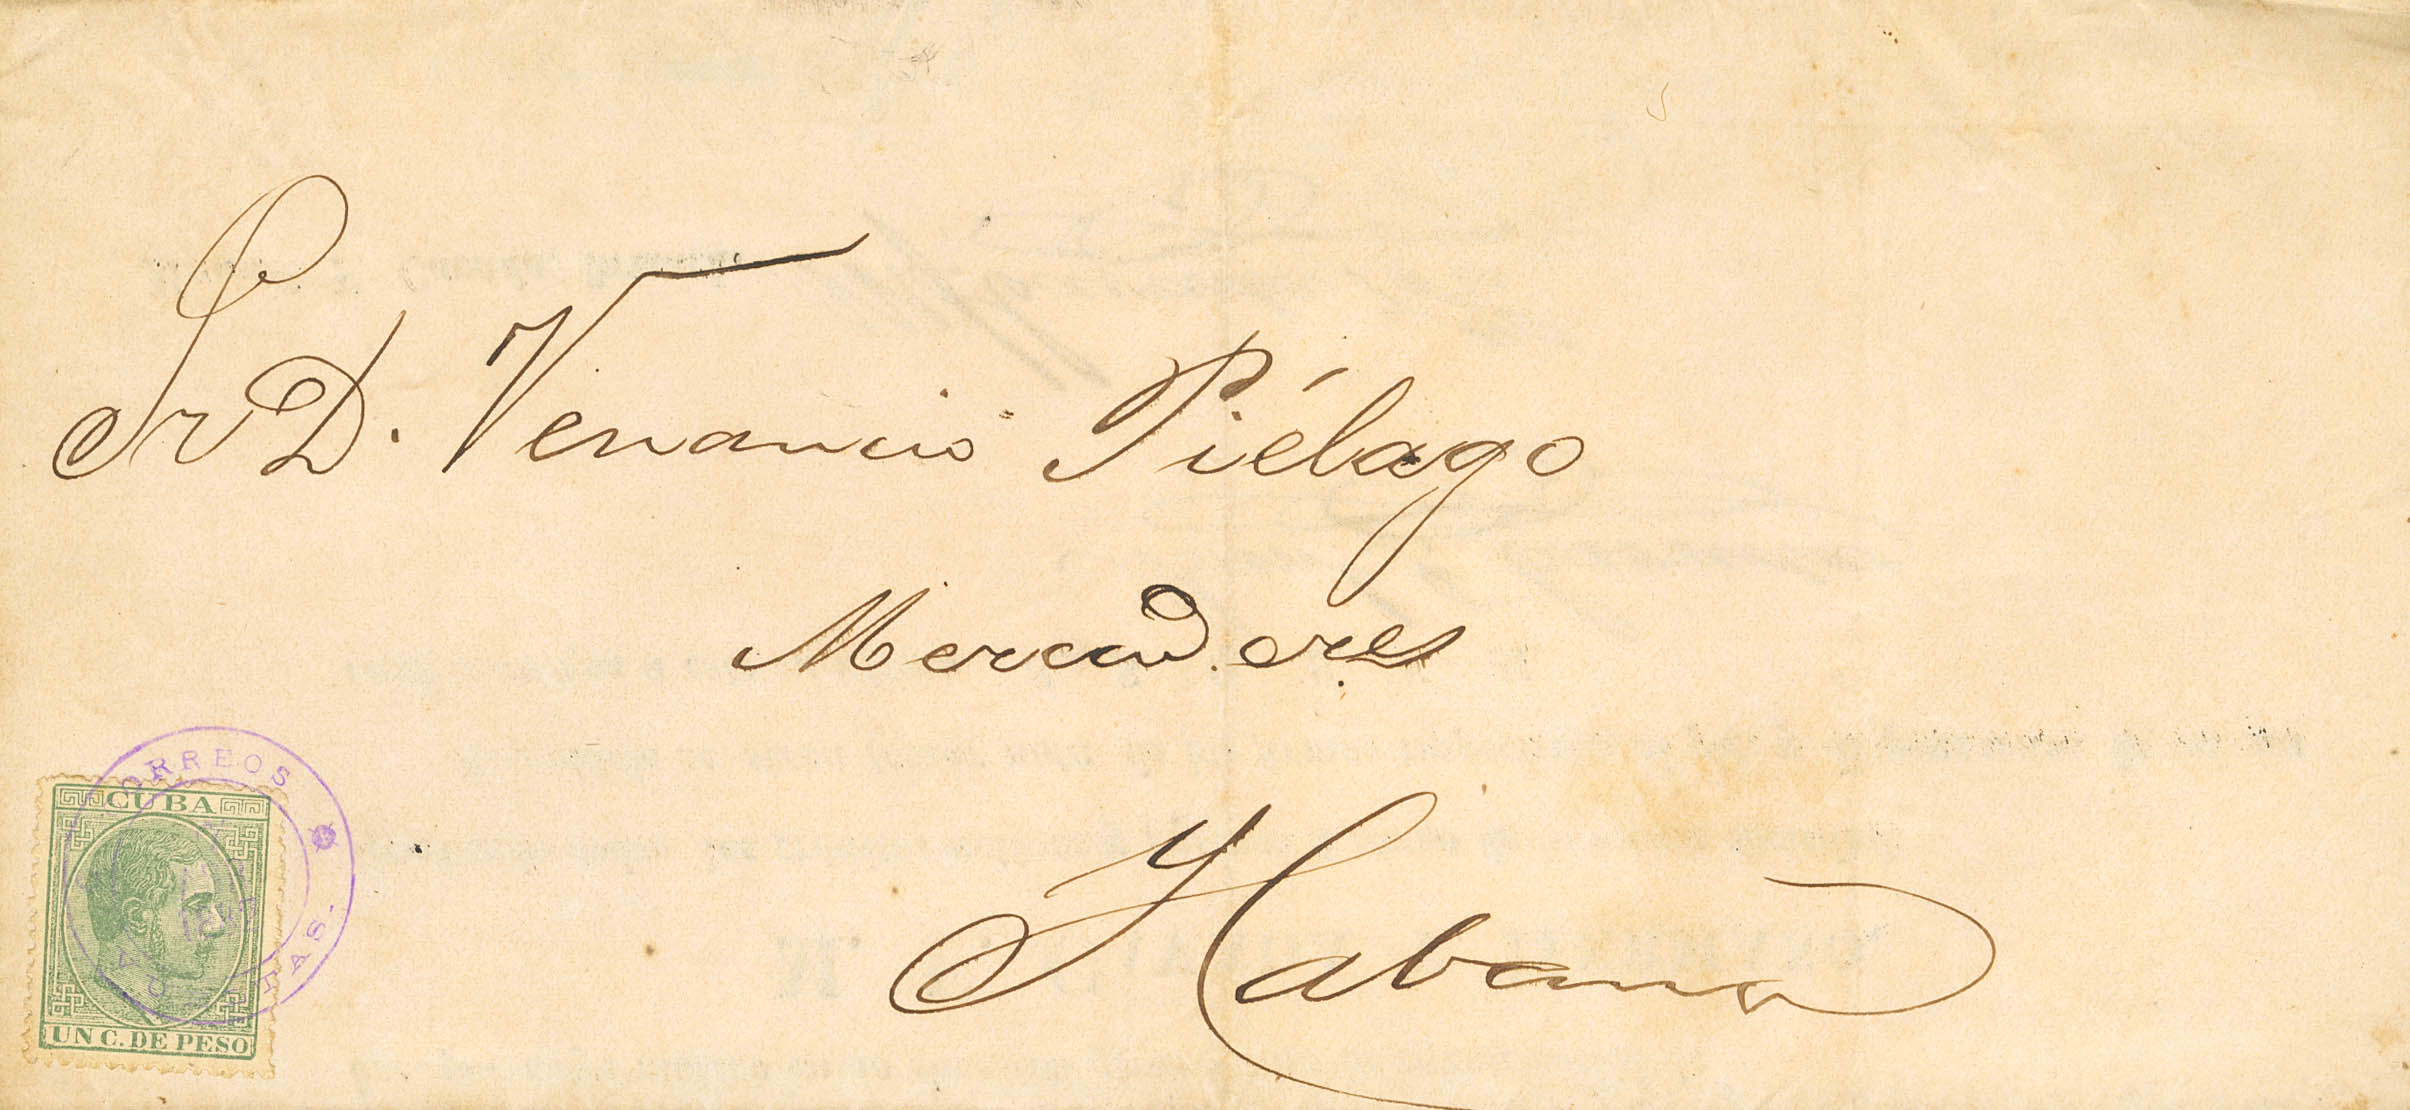 Sr D. Venancio Piélago
Mercaderes
Habana
CORREOS
CUBA
UN C. DE PESO